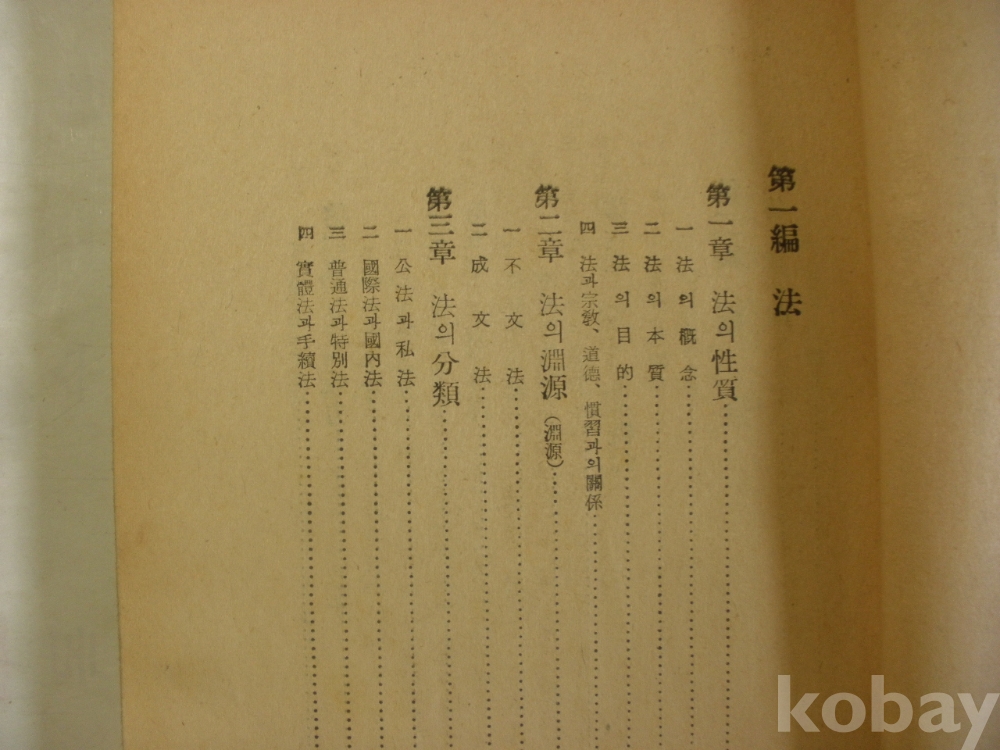 第一編 法
第一章 法의性質
一 法의概念
二 法의本質
三 法의目的
四 法과宗敎、道德、慣習과의關係
第二章 法의淵源(淵源)
一 不文法
二 成文法
第三章 法의分類
一 公法과私法
二 國際法과國內法
三 普通法과特別法
四 實體法과手續法
kobay